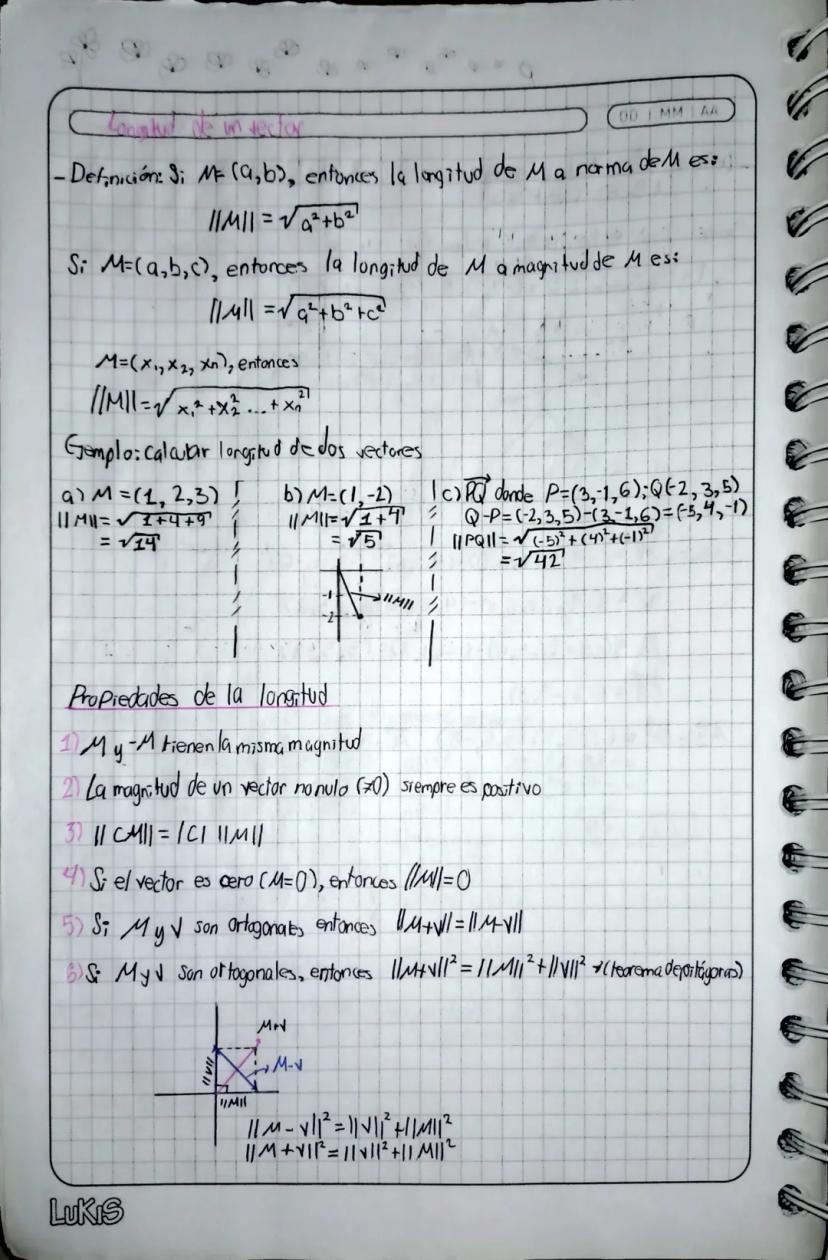 Longitud de un vector
DD | MM | AA
- Definición: Si M=(a,b), entonces la longitud de M a norma de M es:
||M|| = √a²+b²
Si M=(a,b,c), entonces la longitud de M a magnitud de M es:
||M|| = √a²+b²+c²
M=(x₁, x₂, xn), entonces
||M|| = √x₁²+x₂² ...+xn²
Ejemplo: calcular longitud de dos vectores
a) M = (1, 2, 3)
||M|| = √1+4+9
= √14
b) M=(1,-2)
||M|| = √1+4
= √5
-1
-2
||M||
c) PQ donde P=(3,-1,6); Q(-2, 3, 5)
Q-P=(-2,3,5)-(3,-1,6)=(-5,4,-1)
||PQ|| = √(-5)²+(4)²+(-1)²
= √42
Propiedades de la longitud
1) M y -M tienen la misma magnitud
2) La magnitud de un vector no nulo (≠0) siempre es positivo
3) ||CM|| = |C| ||M||
4) Si el vector es cero (M=0), entonces ||M||=0
5) Si M y V son ortogonales entonces ||M+V||=||M-V||
6) Si M y V son ortogonales, entonces ||M+V||² = ||M||²+||V||² → (teorema de pitágoras)
M+V
||V||
M-V
||M||
||M-V||² = ||V||²+||M||²
||M+V||² = ||V||²+||M||²
LUKIS